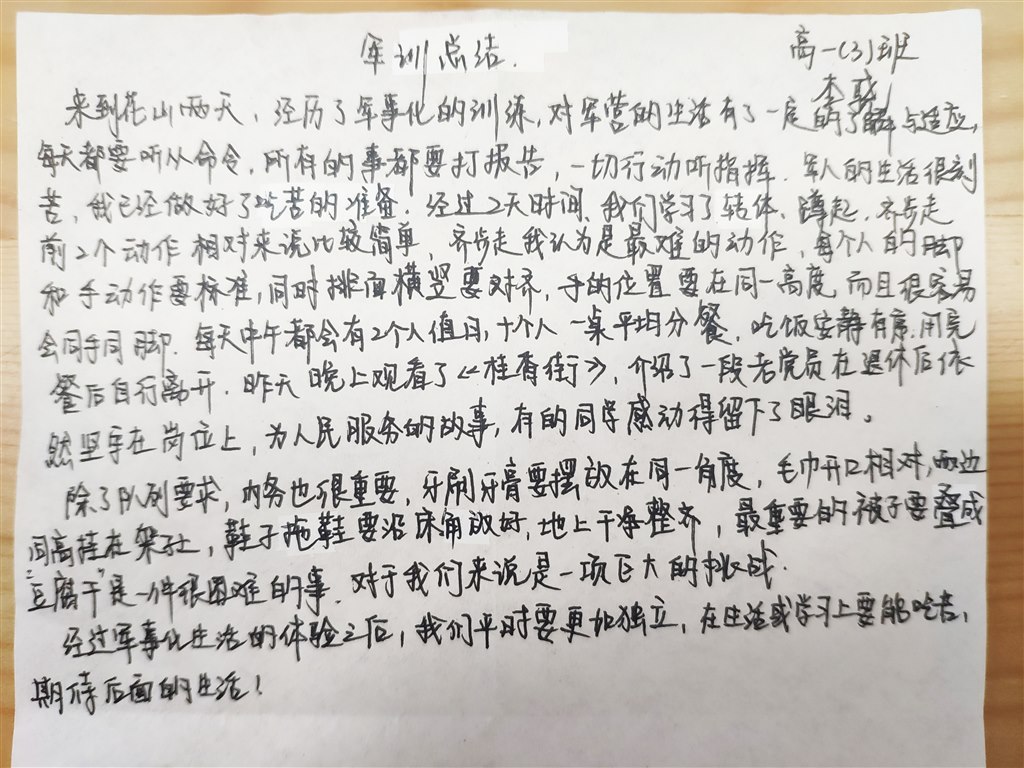 军训总结.
高一(3)班
李
来到花山两天,经历了军事化的训练,对军营的生活有了一定的了解与适应,
每天都要听从命令,所有的事都要打报告,一切行动听指挥.军人的生活很刻
苦,我已经做好了吃苦的准备.经过2天时间、我们学习了转体、蹲起、齐步走
前2个动作相对来说比较简单,齐步走我认为是最难的动作,每个人的脚
和手动作要标准,同时排面横竖要对齐,手的位置要在同一高度而且很容易
会同手同脚.每天中午都会有2个人值日,十个人一桌平均分餐.吃饭安静有序.用完
餐后自行离开.昨天晚上观看了《桂香街》,介绍了一段老党员在退休后依
然坚守在岗位上,为人民服务的故事,有的同学感动得留下了眼泪。
除了队列要求,内务也很重要,牙刷牙膏要摆放在同一角度,毛巾开口相对,两边
同高挂在架子上,鞋子拖鞋要沿床角放好,地上干净整齐,最重要的被子要叠成
"豆腐干"是一件很困难的事.对于我们来说是一项巨大的挑战.
经过军事化生活的体验之后,我们平时要更加独立,在生活或学习上要能吃苦,
期待后面的生活!